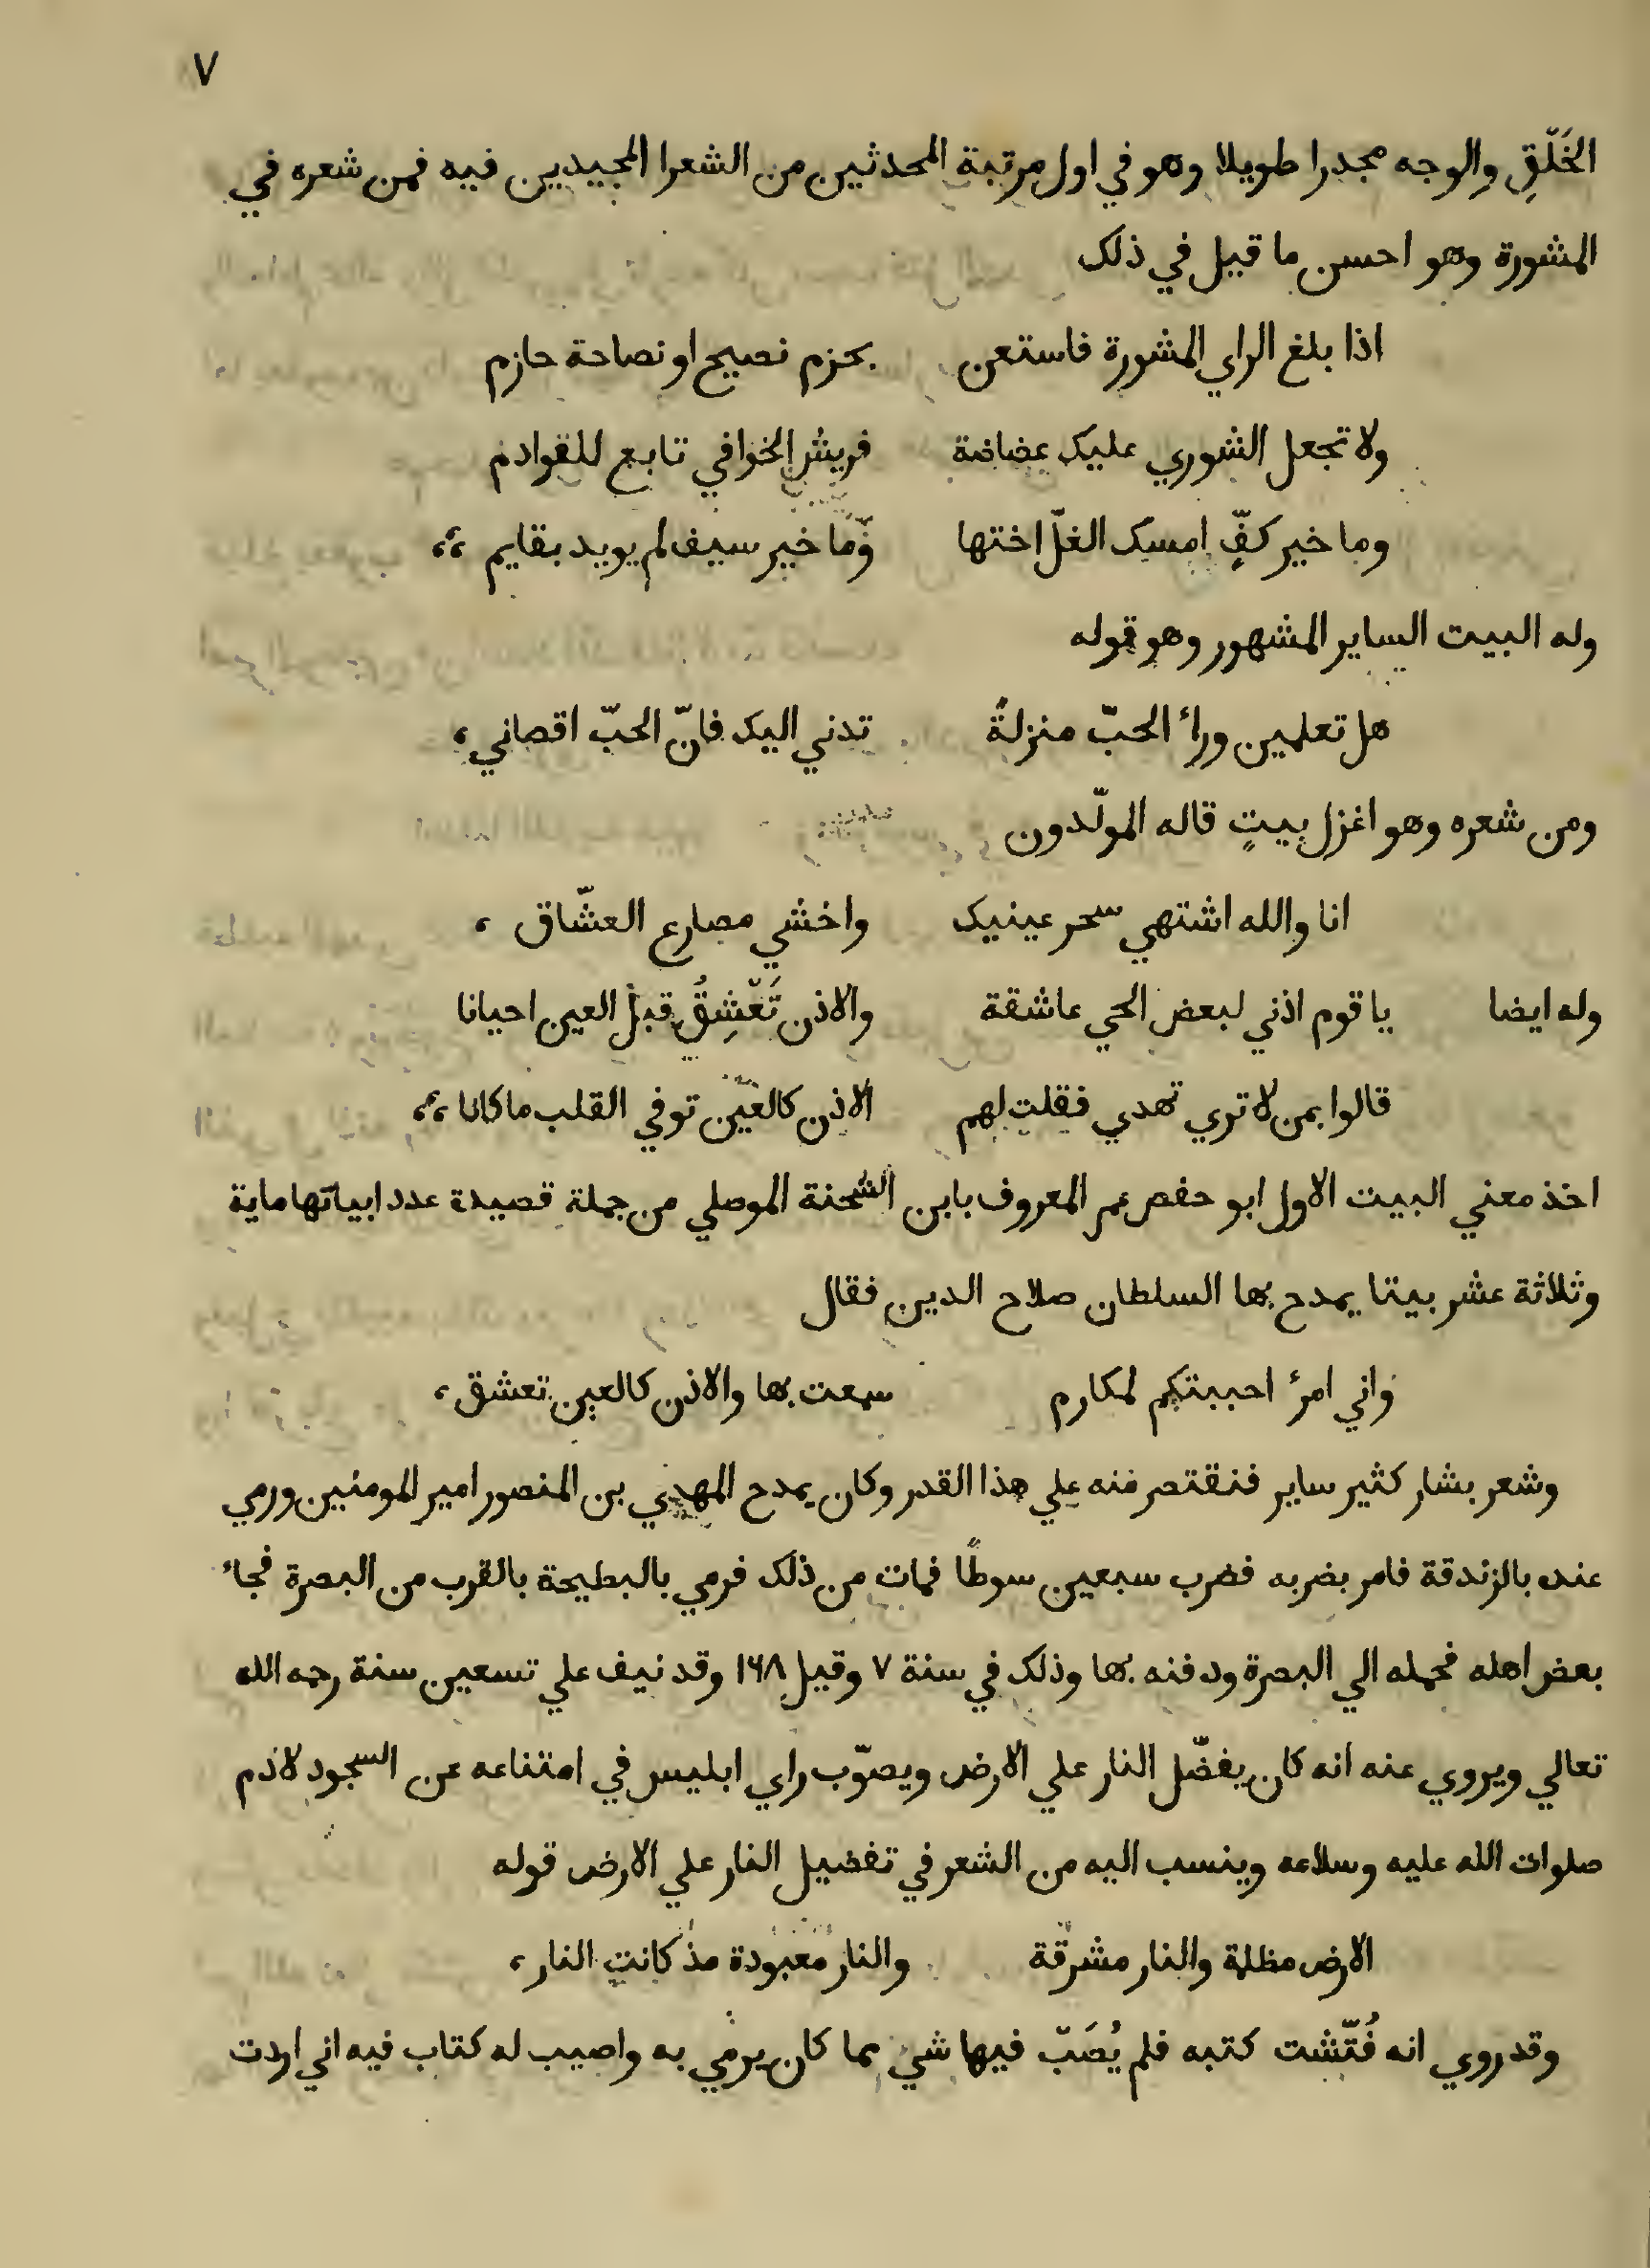 ٧
الخَلْقِ والوجه مجدرا طويلا وهو في اول مرتبة المحدثين من الشعرا المجيدين فيه فمن شعره في
المشورة وهو احسن ما قيل في ذلك
اذا بلغ الراي المشورة فاستعن بحزم نصيح او نصاحة حازم
ولا تجعل الشوري عليك عضاضة فريش الخوافي تابع للقوادم
وما خير كفٍّ امسك الغلّ اختها وَمَا خير سيف لم يويد بقايم ،،
وله البيت الساير المشهور وهو قوله
هل تعلمين وراء الحبّ منزلةً تدني اليك فانّ الحبّ اقصاني ،
ومن شعره وهو اغزل بيتٍ قاله المولّدون
انا والله اشتهي سحر عينيك واخشي مصارع العشّاق ،
وله ايضا يا قوم اذني لبعض الحي عاشقة والاذن تَعْشِقُ قبل العين احيانا
قالوا بمن لا تري تهدي فقلت لهم الاذن كالعين توفي القلب ما كانا ،،
اخذ معني البيت الاول ابو حفص عمر المعروف بابن الشحنة الموصلي من جملة قصيدة عدد ابياتها ماية
وثلاثة عشر بيتا يمدح بها السلطان صلاح الدين فقال
واني امرء احببتكم لمكارم سمعت بها والاذن كالعين تعشق ،
وشعر بشار كثير ساير فنقتصر منه علي هذا القدر وكان يمدح المهدي بن المنصور امير المومنين ورمي
عنده بالزندقة فامر بضربه فضرب سبعين سوطًا فمات من ذلك فرمي بالبطيحة بالقرب من البصرة فجاء
بعض اهله فحمله الي البصرة ودفنه بها وذلك في سنة ٧ وقيل ١٦٨ وقد نيف علي تسعين سنة رحمه الله
تعالي ويروي عنه انه كان يفضّل النار علي الارض ويصوّب راي ابليس في امتناعه عن السجود لادم
صلوات الله عليه وسلامه وينسب اليه من الشعر في تفضيل النار علي الارض قوله
الارض مظلمة والنار مشرقة والنار معبودة مذ كانت النار ،
وقد روي انه فُتّشت كتبه فلم يُصَبْ فيها شيء مما كان يرمي به واصيب له كتاب فيه اني اردت